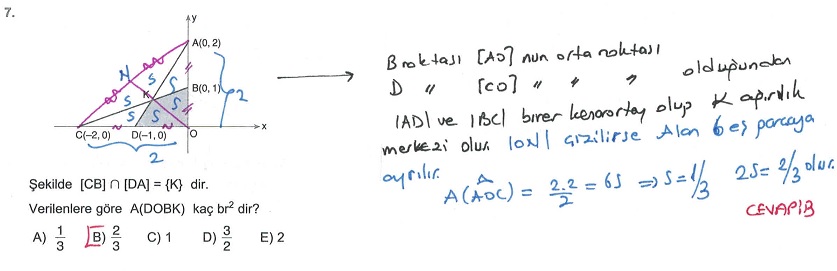 7.
y
A(0, 2)
N
S
S
B(0, 1)
2
S
K
S
S
S
x
C(–2, 0)
D(–1, 0)
O
2
Şekilde [CB] ∩ [DA] = {K} dir.
Verilenlere göre A(DOBK) kaç br² dir?
A) 1/3 B) 2/3 C) 1 D) 3/2 E) 2
B noktası [AO] nun orta noktası
D " [CO] " " " olduğundan
|AD| ve |BC| birer kenarortay olup K ağırlık
merkezi olur. |ON| çizilirse Alan 6 eş parçaya
ayrılır.
A(AOC) = 2.2/2 = 6S ⇒ S = 1/3 2S = 2/3 olur.
CEVAP B